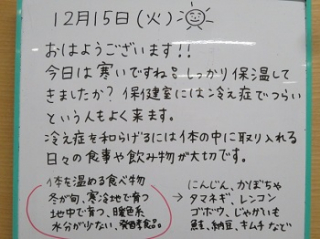 12月15日(火)
おはようございます!!
今日は寒いですね。しっかり保温して
きましたか?保健室には冷え症でつらい
という人もよく来ます。
冷え症を和らげるには体の中に取り入れる
日々の食事や飲み物が大切です。
体を温める食べ物
冬が旬、寒冷地で育つ
地中で育つ、暖色系
水分が少ない、発酵食品。
→ にんじん、かぼちゃ
タマネギ、レンコン
ゴボウ、じゃがいも
鮭、納豆、キムチなど